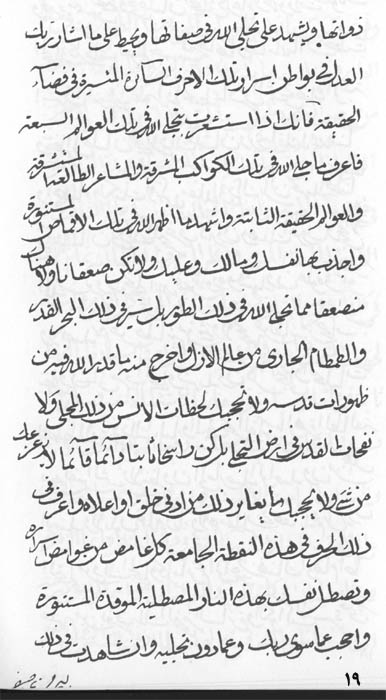 ذواتها ويشهد على تجلى الله فى صفاتها ويحيط على ما اشار ربك
العدل فى بواطن اسرار تلك الاحرف السائرة المنيرة فى فضآء
الحقيقة فانك اذا استشعرت بتجلى الله فى تلك العوالم السبعة
فاعرف ما جلى الله فى تلك الكواكب المشرقة والمشاعر الطالعة المستشرقة
والعوالم الحقيقة الثابتة واشهد ما اظهر الله فى تلك الاقماص المستنورة
واجذب بها نفسك ومالك وعليك ولا تكن صعقا ولا هناك
منصعقا مما تجلى الله فى ذلك الطور بل سر فى ذلك البحر القدر
والطمطام الجارى من عالم الازل واخرج منه ما قدر الله فيه من
ظهورات قدسه ولا تحجبك لحظات الانس من ذلك المجلى ولا
نفحات القدس فى ارض التجلى بل كن راسخا ثابتا دآئما قآئما لا يعزعك
من شئ ولا يحجبك ما يغاير ذلك مراد فى خلق او اعلاه واعرف فى
ذلك الحرف فى هذه النقطة الجامعة كل غامض من غوامض اسراره
وتصطل نفسك بهذه النار المصطلية الموقدة المستنورة
واحجب عما سوى ربك وعما دون تجليه وان شاهدت فى ذلك
١٩